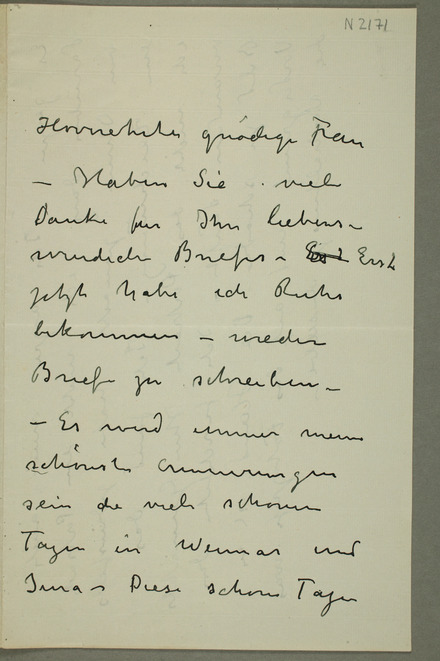 N 2171
Hovverehrte gnädige Frau
– Haben Sie viele
Danke für Ihre liebens-
würdiche Briefes – Erst
jetzt habe ich Ruhe
bekommen – wieder
Briefe zu schreiben –
– Es wird immer meine
schönste errinerungen
sein die viele schönen
Tagen in Weimar und
Jena – Diese schöne Tagen